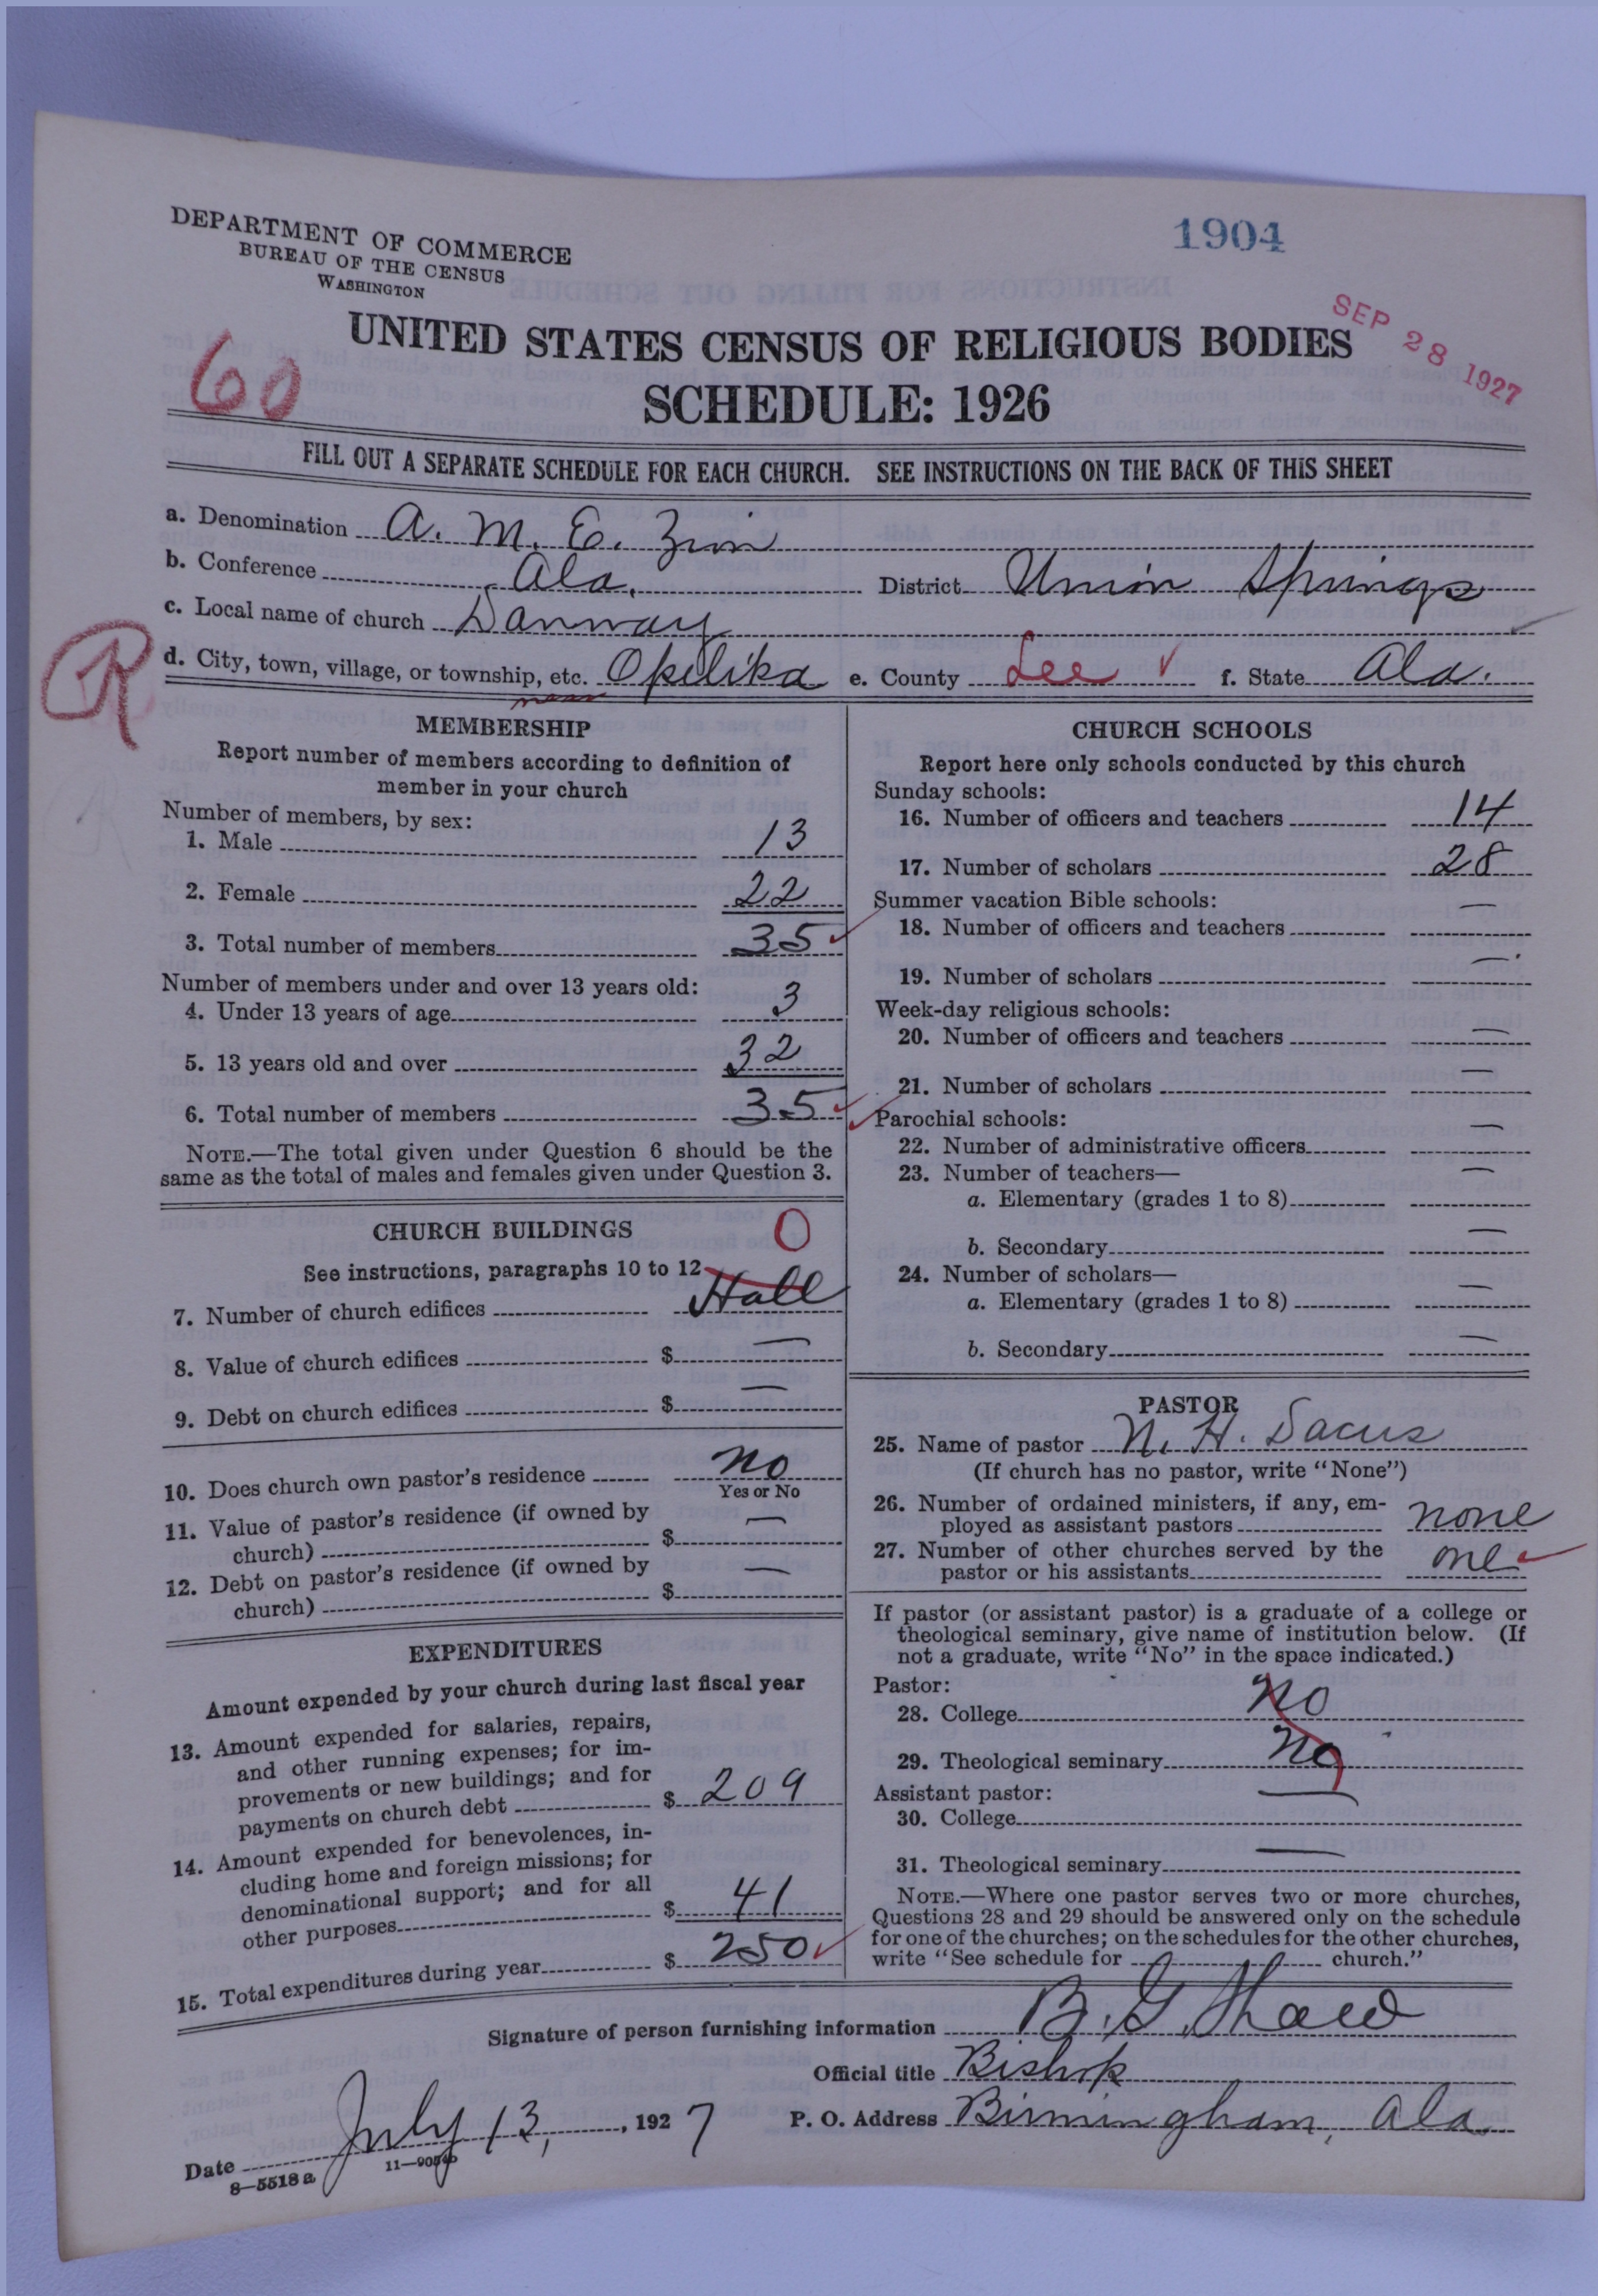 DEPARTMENT OF COMMERCE
BUREAU OF THE CENSUS
WASHINGTON
1904
SEP 28 1927
60
UNITED STATES CENSUS OF RELIGIOUS BODIES
SCHEDULE: 1926
FILL OUT A SEPARATE SCHEDULE FOR EACH CHURCH. SEE INSTRUCTIONS ON THE BACK OF THIS SHEET
a. Denomination A. M. E. Zion
b. Conference Ala. District Union Springs
c. Local name of church Danway
R
d. City, town, village, or township, etc. Opelika e. County Lee f. State Ala.
near
MEMBERSHIP
Report number of members according to definition of
member in your church
Number of members, by sex:
1. Male 13
2. Female 22
3. Total number of members 35
Number of members under and over 13 years old:
4. Under 13 years of age 3
5. 13 years old and over 32
6. Total number of members 35
NOTE.—The total given under Question 6 should be the
same as the total of males and females given under Question 3.
CHURCH BUILDINGS 0
See instructions, paragraphs 10 to 12
7. Number of church edifices Hall
8. Value of church edifices $ —
9. Debt on church edifices $ —
10. Does church own pastor's residence no
Yes or No
11. Value of pastor's residence (if owned by
church) $ —
12. Debt on pastor's residence (if owned by
church) $ —
EXPENDITURES
Amount expended by your church during last fiscal year
13. Amount expended for salaries, repairs,
and other running expenses; for im-
provements or new buildings; and for
payments on church debt $ 209
14. Amount expended for benevolences, in-
cluding home and foreign missions; for
denominational support; and for all
other purposes $ 41
15. Total expenditures during year $ 250
CHURCH SCHOOLS
Report here only schools conducted by this church
Sunday schools:
16. Number of officers and teachers 14
17. Number of scholars 28
Summer vacation Bible schools:
18. Number of officers and teachers —
19. Number of scholars —
Week-day religious schools:
20. Number of officers and teachers —
21. Number of scholars —
Parochial schools:
22. Number of administrative officers —
23. Number of teachers—
a. Elementary (grades 1 to 8) —
b. Secondary —
24. Number of scholars—
a. Elementary (grades 1 to 8) —
b. Secondary —
PASTOR
25. Name of pastor N. H.
(If church has no pastor, write "None")
26. Number of ordained ministers, if any, em-
ployed as assistant pastors none
27. Number of other churches served by the
pastor or his assistants one
If pastor (or assistant pastor) is a graduate of a college or
theological seminary, give name of institution below. (If
not a graduate, write "No" in the space indicated.)
Pastor:
28. College no
29. Theological seminary no
Assistant pastor:
30. College —
31. Theological seminary —
NOTE.—Where one pastor serves two or more churches,
Questions 28 and 29 should be answered only on the schedule
for one of the churches; on the schedules for the other churches,
write "See schedule for church."
Signature of person furnishing information B. G. Shaw
Official title Bishop
Date July 13, 1927 P. O. Address Birmingham, Ala.
8—5518 a